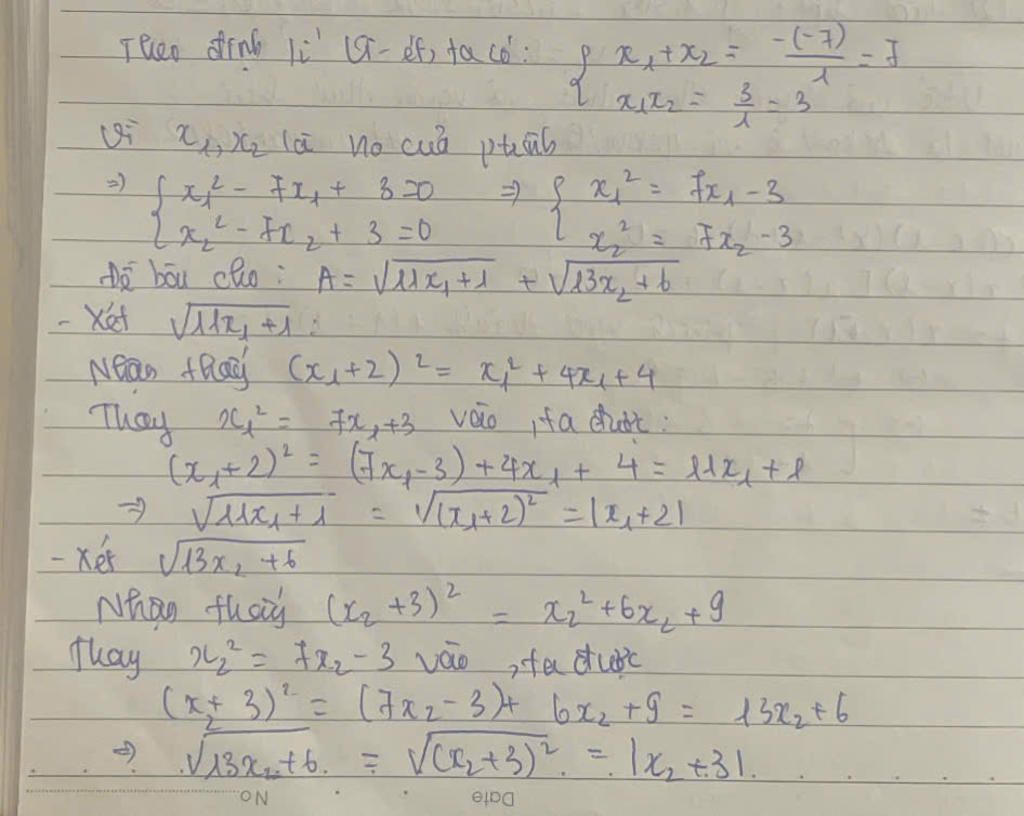 Theo định lí Vi-ét, ta có: { x₁ + x₂ = -(-7)/1 = 7
x₁x₂ = 3/1 = 3
Vì x₁, x₂ là no của ptrình
⇒ { x₁² - 7x₁ + 3 = 0 ⇒ { x₁² = 7x₁ - 3
x₂² - 7x₂ + 3 = 0 x₂² = 7x₂ - 3
Đề bài cho : A = √(11x₁ + 1) + √(13x₂ + 6)
- Xét √(11x₁ + 1) :
Nhận thấy (x₁ + 2)² = x₁² + 4x₁ + 4
Thay x₁² = 7x₁ + 3 vào , ta được :
(x₁ + 2)² = (7x₁ - 3) + 4x₁ + 4 = 11x₁ + 1
⇒ √(11x₁ + 1) = √((x₁ + 2)²) = |x₁ + 2|
- Xét √(13x₂ + 6)
Nhận thấy (x₂ + 3)² = x₂² + 6x₂ + 9
Thay x₂² = 7x₂ - 3 vào , ta được
(x₂ + 3)² = (7x₂ - 3) + 6x₂ + 9 = 13x₂ + 6
⇒ √(13x₂ + 6) = √((x₂ + 3)²) = |x₂ + 3|.
No Date